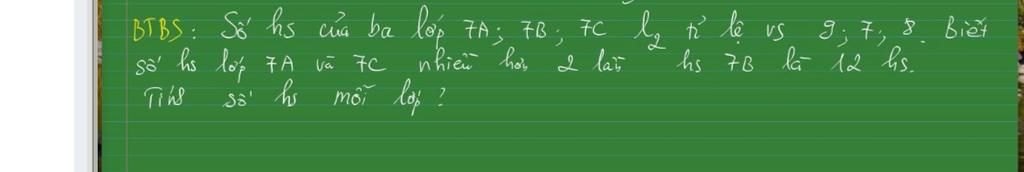 BTBS: Số hs của ba lớp 7A; 7B; 7C l2 tỉ lệ vs 9; 7; 8. Biết
số hs lớp 7A và 7C nhiều hơn 2 lần hs 7B là 12 hs.
Tính số hs mỗi lớp?